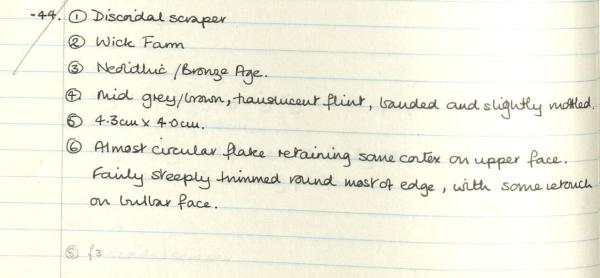 -44. ① Discoidal scraper
② Wick Farm
③ Neolithic / Bronze Age.
④ Mid grey/brown, translucent flint, banded and slightly mottled.
⑤ 4.3cm x 4.0cm.
⑥ Almost circular flake retaining some cortex on upper face.
Fairly steeply trimmed round most of edge, with some retouch
on bulbar face.
⑤ f3